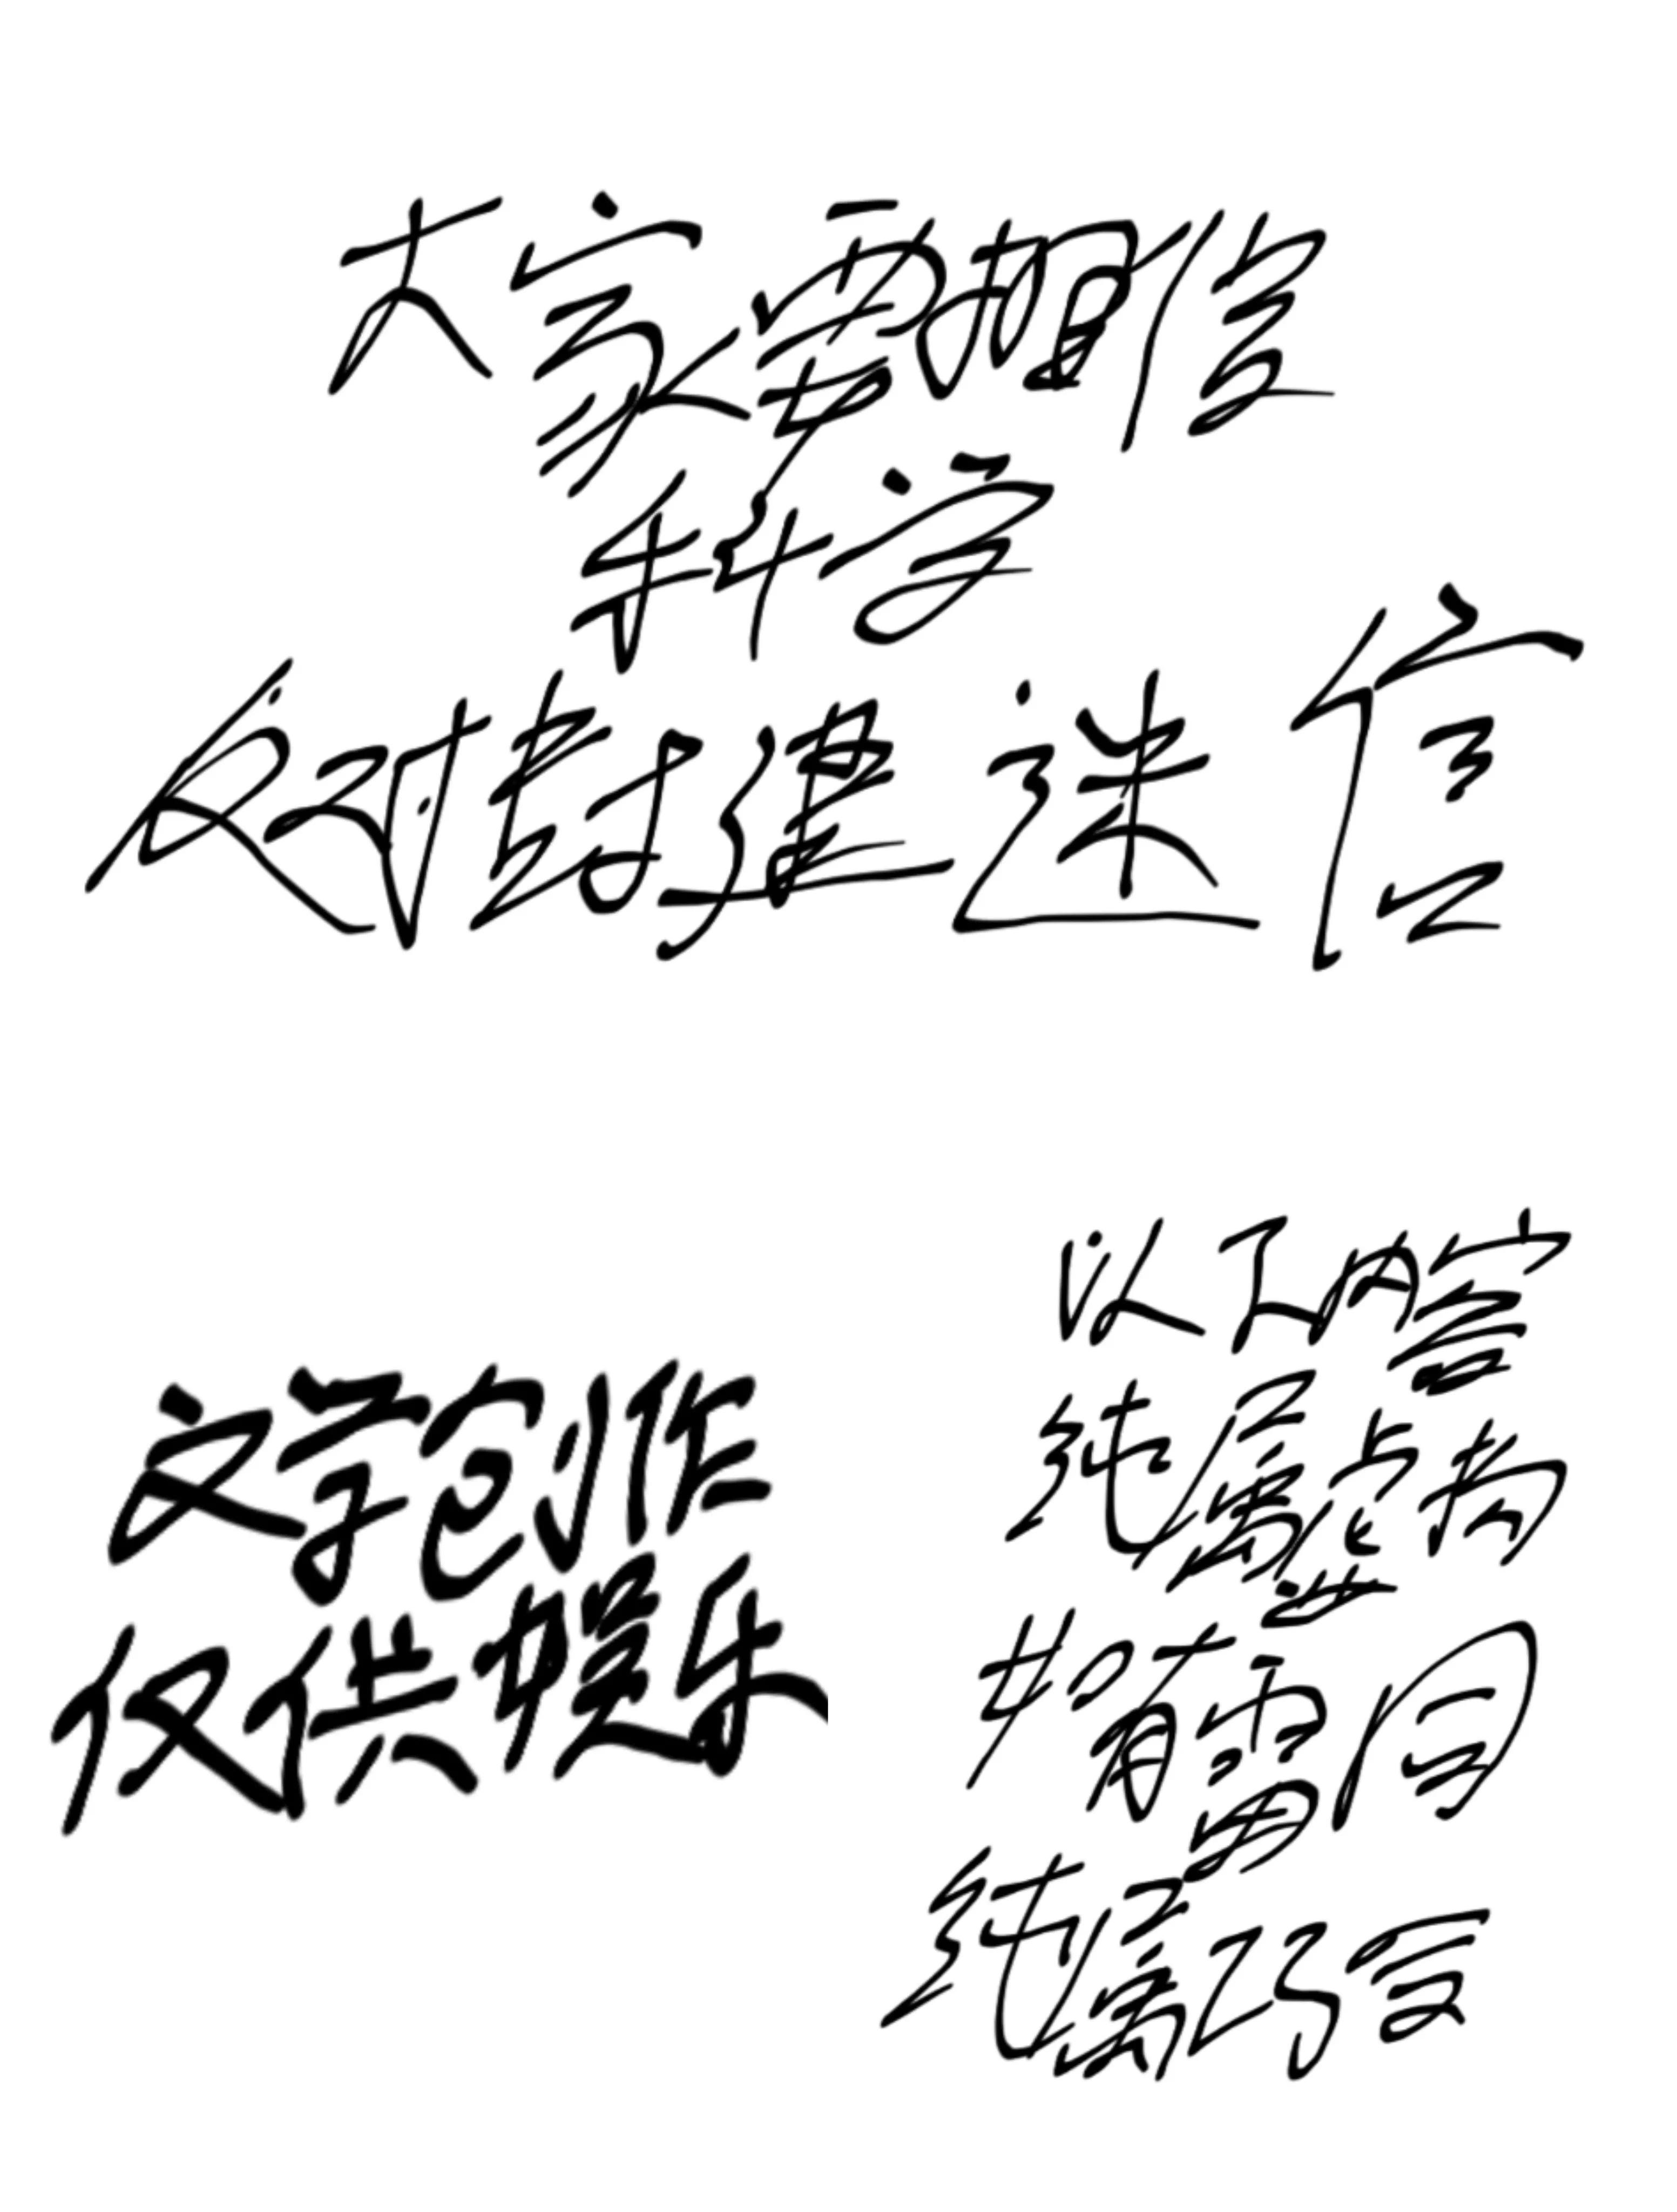 大家要相信
科学
反对封建迷信
文字创作
仅供娱乐
以下内容
纯属虚构
如有雷同
纯属巧合